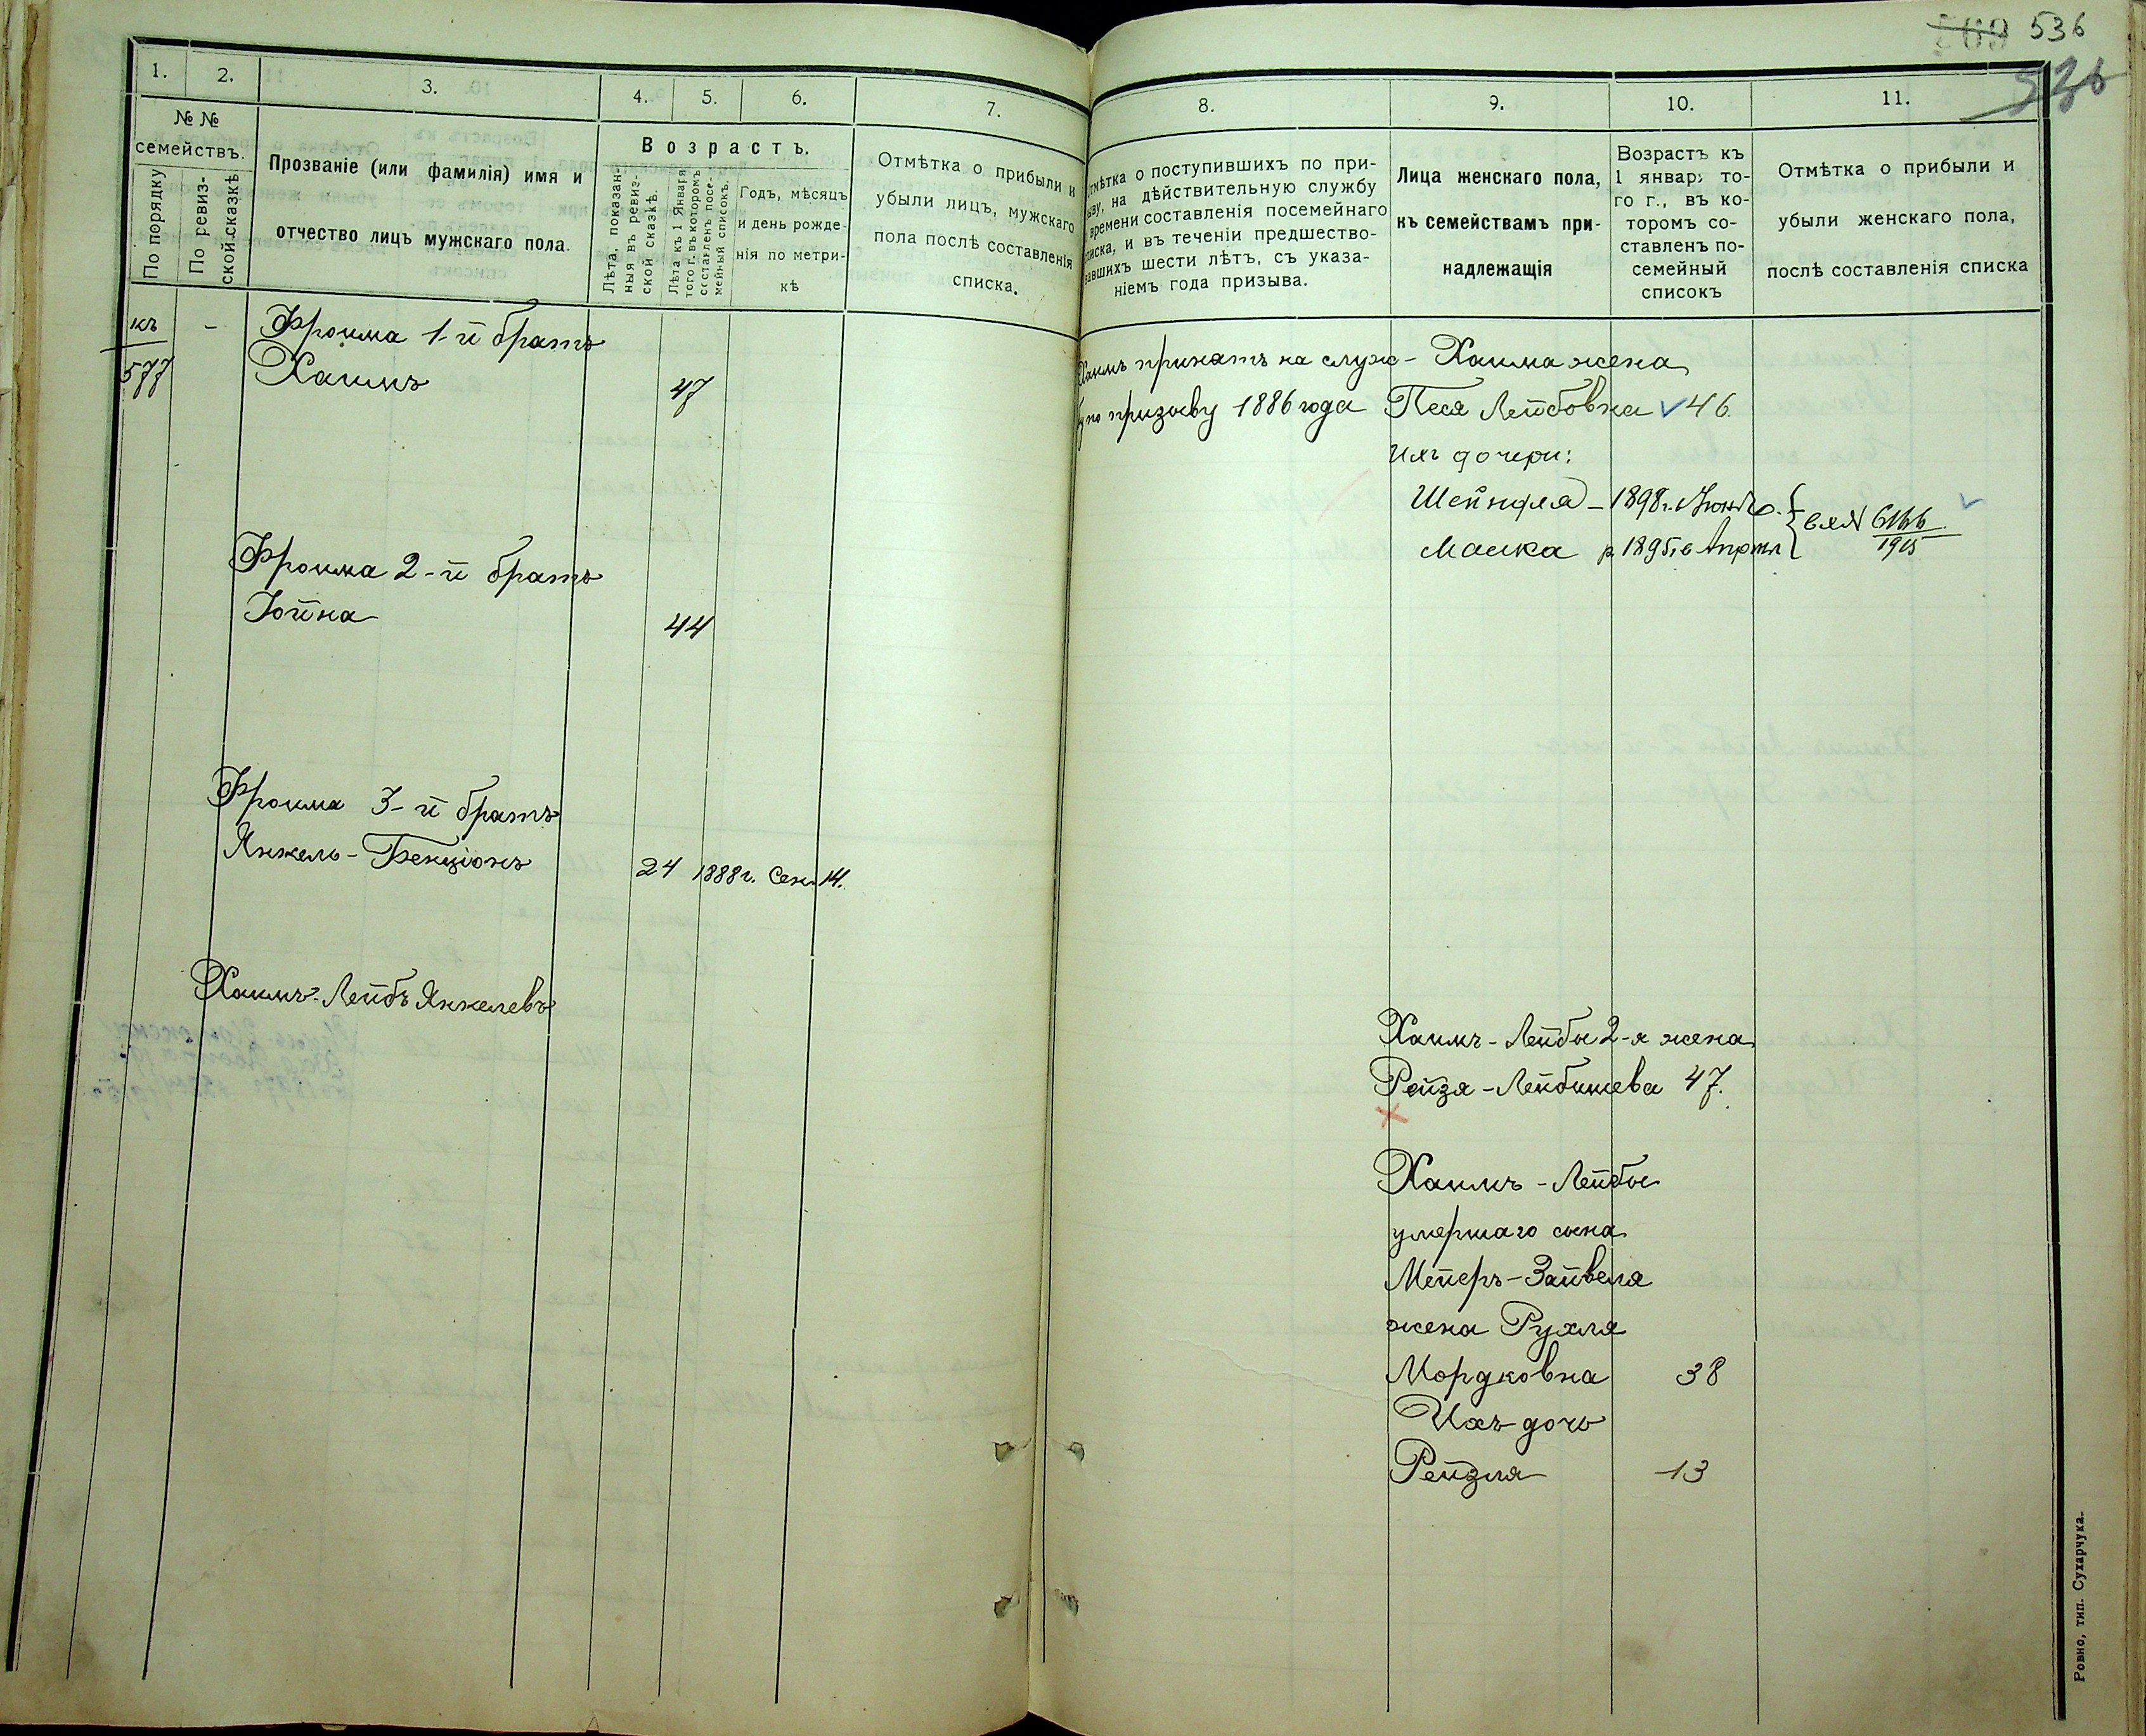 536
536
1.
2.
3.
4.
5.
6.
7.
8.
9.
10.
11.
№ №
семействъ.
По порядку
По ревиз-
ской сказкѣ
Прозваніе (или фамилія) имя и
отчество лицъ мужскаго пола.
Возрастъ.
Лѣта, показан-
ныя въ ревиз-
ской сказкѣ.
Лѣта къ 1 Января
того г. въ которомъ
составленъ посе-
мейный списокъ.
Годъ, мѣсяцъ
и день рожде-
нія по метри-
кѣ
Отмѣтка о прибыли и
убыли лицъ, мужскаго
пола послѣ составленія
списка.
Отмѣтка о поступившихъ по при-
зыву, на дѣйствительную службу
времени составленія посемейнаго
списка, и въ теченіи предшество-
вавшихъ шести лѣтъ, съ указа-
ніемъ года призыва.
Лица женскаго пола,
къ семействамъ при-
надлежащія
Возрастъ къ
1 январѣ то-
го г., въ ко-
торомъ со-
ставленъ по-
семейный
списокъ
Отмѣтка о прибыли и
убыли женскаго пола,
послѣ составленія списка
къ
577
-
Фроима 1-й братъ
Хаимъ
47
Хаимъ принятъ на служ-
бу по призыву 1886 года
Хаима жена
Песя Лейбовна 46
Ихъ дочери:
Шейндля - 1898 г.
Малка р. 1895 г. Апрѣл
1915
Фроима 2-й братъ
Іойна
44
Фроима 3-й братъ
Янкель-Бенціонъ
24 1888 г. Сен. 14.
Хаимъ-Лейбъ Янкелевъ
Хаимъ-Лейбы 2-я жена
Рейзя-Лейбишева 47.
Хаимъ-Лейбы
умершаго сына
Мейеръ-Зайвеля
жена Рухля
Мордковна 38
Ихъ дочь
Рейзля 13
Ровно, тип. Сухарчука.